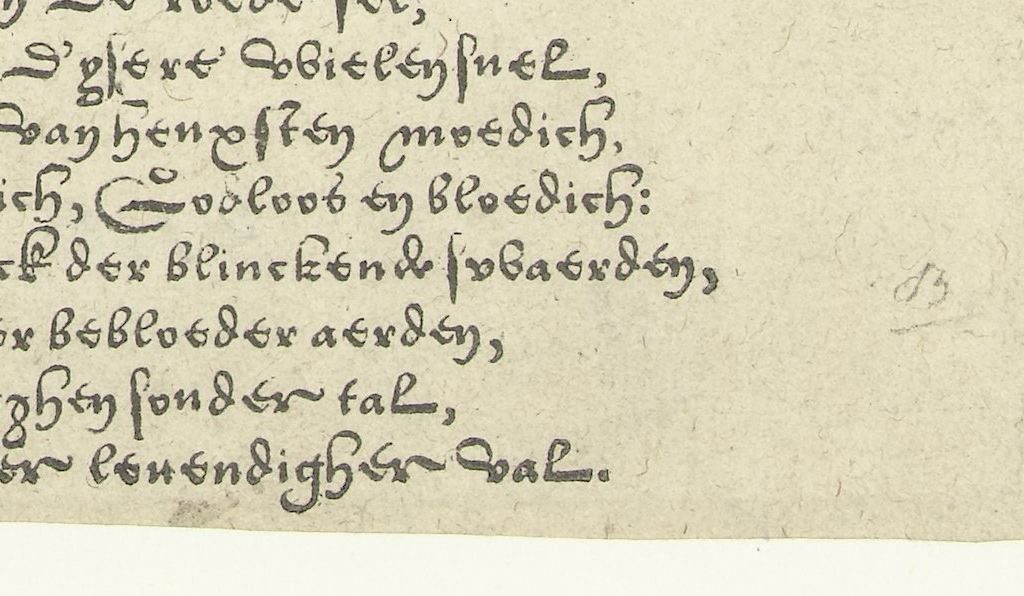 De roede see,
D'ysere vvielen snel,
van henxsten moedich,
ich, Godloos en bloedich:
ck der blinckende svvaerden,
er bebloeder aerden,
ghen sonder tal,
er leuendigher val.